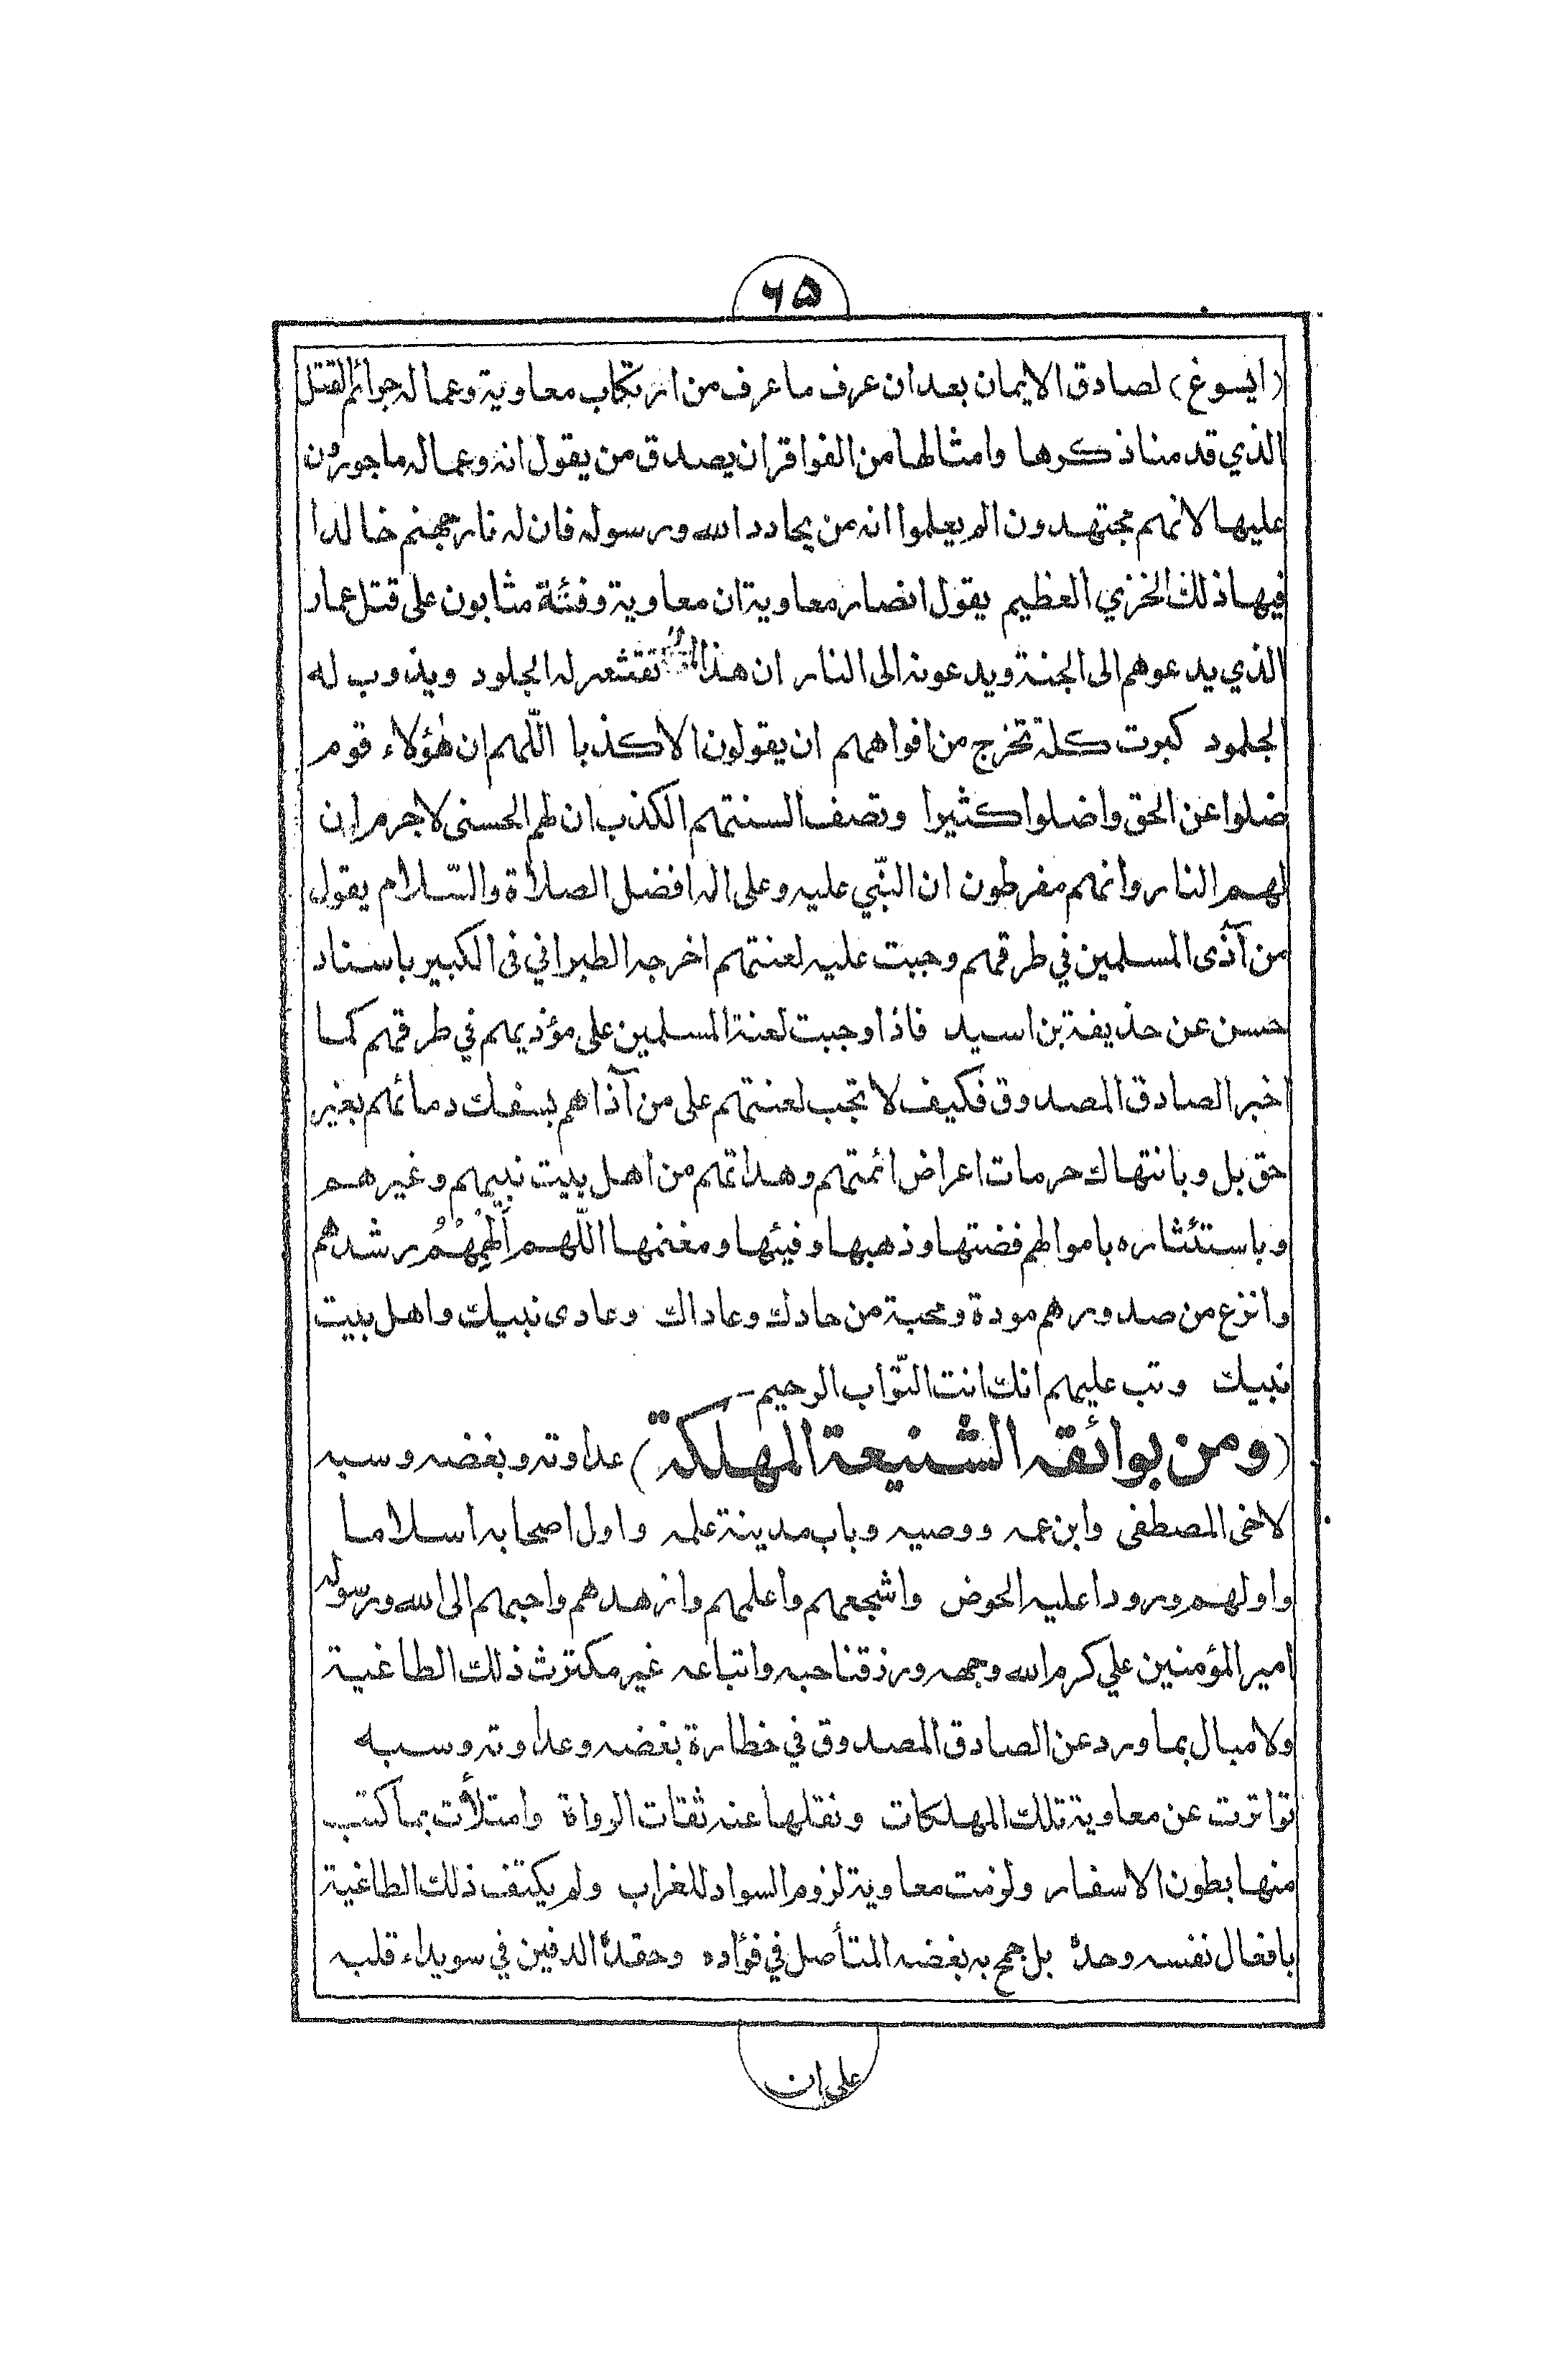 ۶۵
(ايسوغ) لصادق الايمان بعد ان عرف ما عرف من ارتكاب معاوية وعماله جرائم القتل
الذي قدمنا ذكرها وامثالها من الفواقر ان يصدق من يقول انه وعماله ماجورون
عليها لانهم مجتهدون الم يعلموا انه من يحادد الله ورسوله فان له نار جهنم خالدا
فيها ذلك الخزي العظيم يقول انصار معاوية ان معاوية وفئة مثابون على قتل عمار
الذي يدعوهم الى الجنة ويدعونه الى النار ان هذا تقشعر له الجلود ويذوب له
الجلمود كبرت كلمة تخرج من افواههم ان يقولون الا كذبا اللّهم ان هٰؤلاء قوم
ضلوا عن الحق واضلوا كثيرا وتصف السنتهم الكذب ان لهم الحسنى لا جرم ان
لهم النار وانهم مفرطون ان النبّي عليه وعلى اله افضل الصلاة والسّلام يقول
من آذى المسلمين في طرقهم وجبت عليه لعنتهم اخرجه الطبراني فى الكبير باسناد
حسن عن حذيفة بن اسيد فاذا وجبت لعنة المسلمين على مؤذيهم في طرقهم كما
اخبر الصادق المصدوق فكيف لا تجب لعنتهم على من آذاهم بسفك دمائهم بغير
حق بل وبانتهاك حرمات اعراض ائمتهم وهداتهم من اهل بيت نبيهم وغيرهم
وباستئثاره باموالهم فضتها وذهبها وفيئها ومغنمها اللّهم أَلْهِمْهُمْ رشدهم
وانزع من صدورهم مودة ومحبة من حادك وعاداك وعادى نبيك واهل بيت
نبيك وتب عليهم انك انت التوّاب الرحيم-
(ومن بوائقه الشنيعة المهلكة) عداوته وبغضه وسبه
لاخى المصطفى وابن عمه ووصيه وباب مدينة علمه واول اصحابه اسلاما
واولهم ورودا عليه الحوض واشجعهم واعلمهم وازهدهم واحبهم الى الله ورسوله
امير المؤمنين علي كرم الله وجهه ورزقنا حبه واتباعه غير مكترث ذلك الطاغية
ولا مبال بما ورد عن الصادق المصدوق في خطارة بغضه وعداوته وسبه
تواترت عن معاوية تلك المهلكات ونقلها عنه ثقات الرواة وامتلأت بما كتب
منها بطون الاسفار ولزمت معاوية لزوم السواد للغراب ولم يكتف ذلك الطاغية
بافعال نفسه وحده بل جمح به بغضه المتأصل في فؤاده وحقده الدفين في سويداء قلبه
على ان